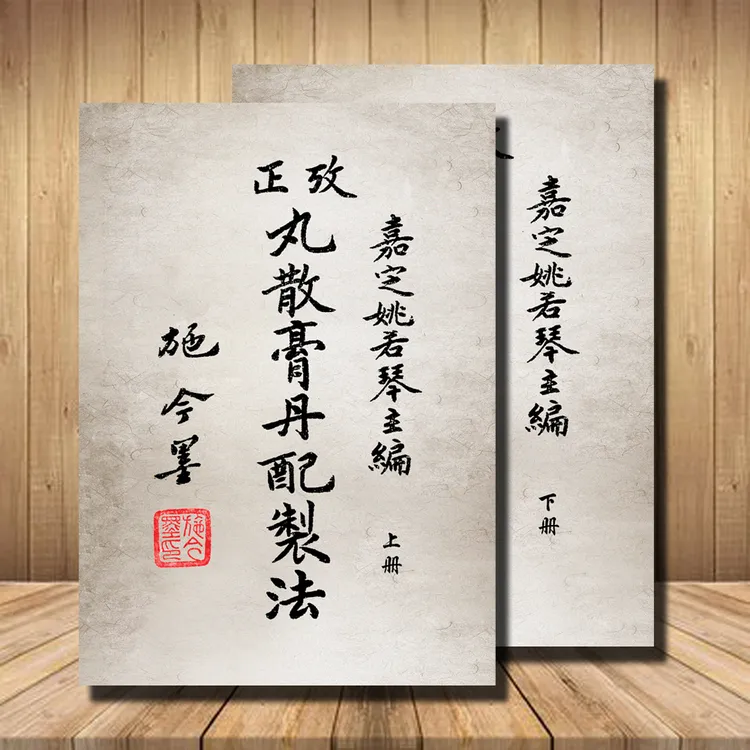 嘉定姚若琴主編
上册
攷正
丸散膏丹配製法
施今墨
施今
墨印
嘉定姚若琴主編
下册